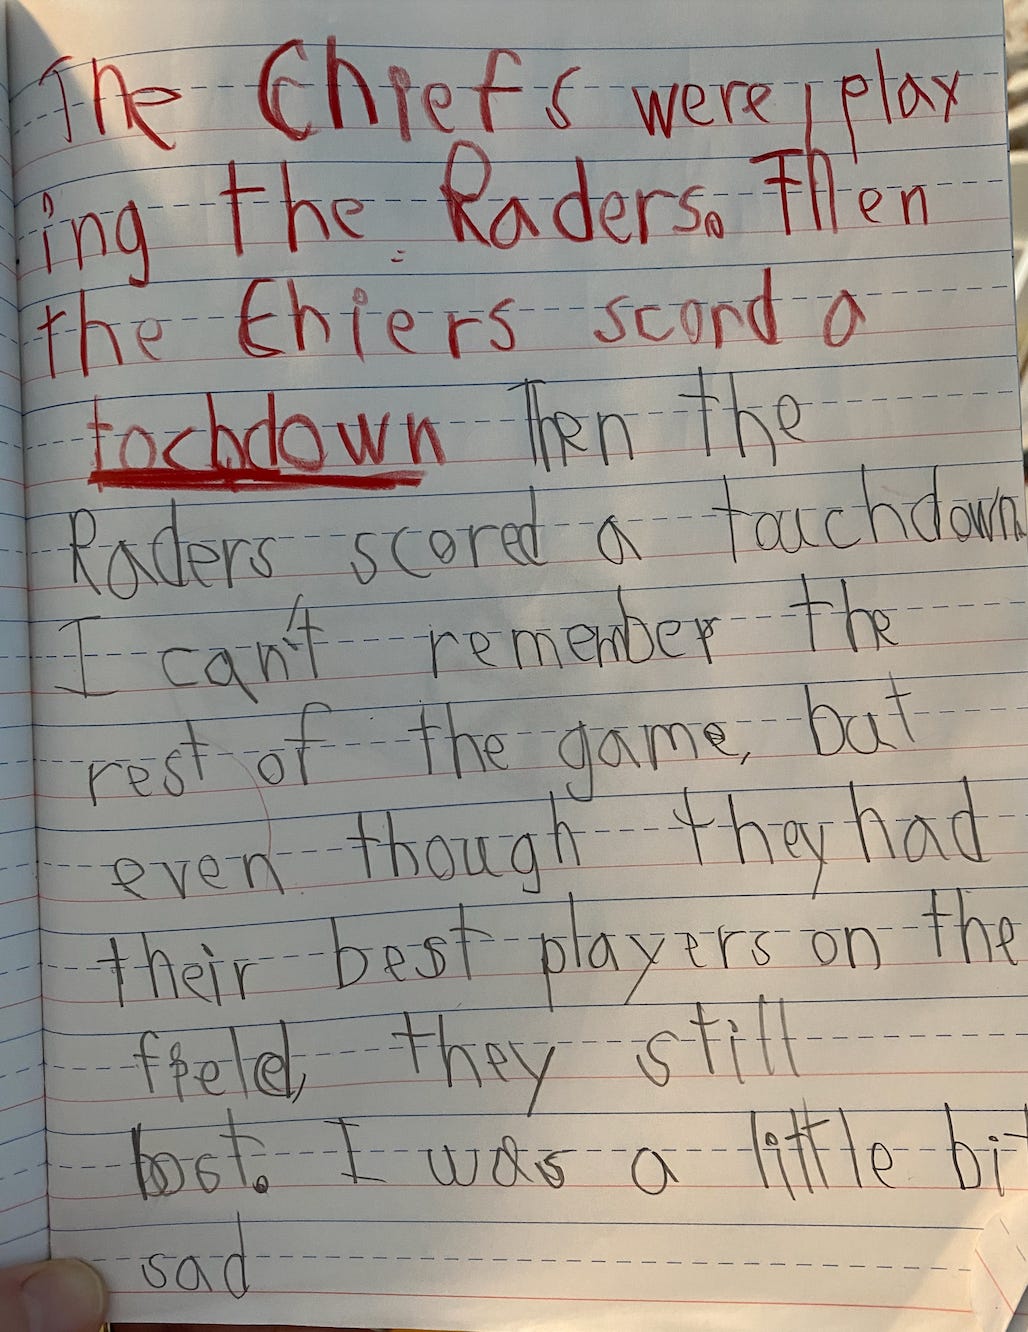 The Chiefs were play
ing the Raders. Then
the Chiers scord a
tochdown Then the
Raders scored a touchdown.
I can't remember the
rest of the game, but
even though they had
their best players on the
field, they still
lost. I was a little bit
sad